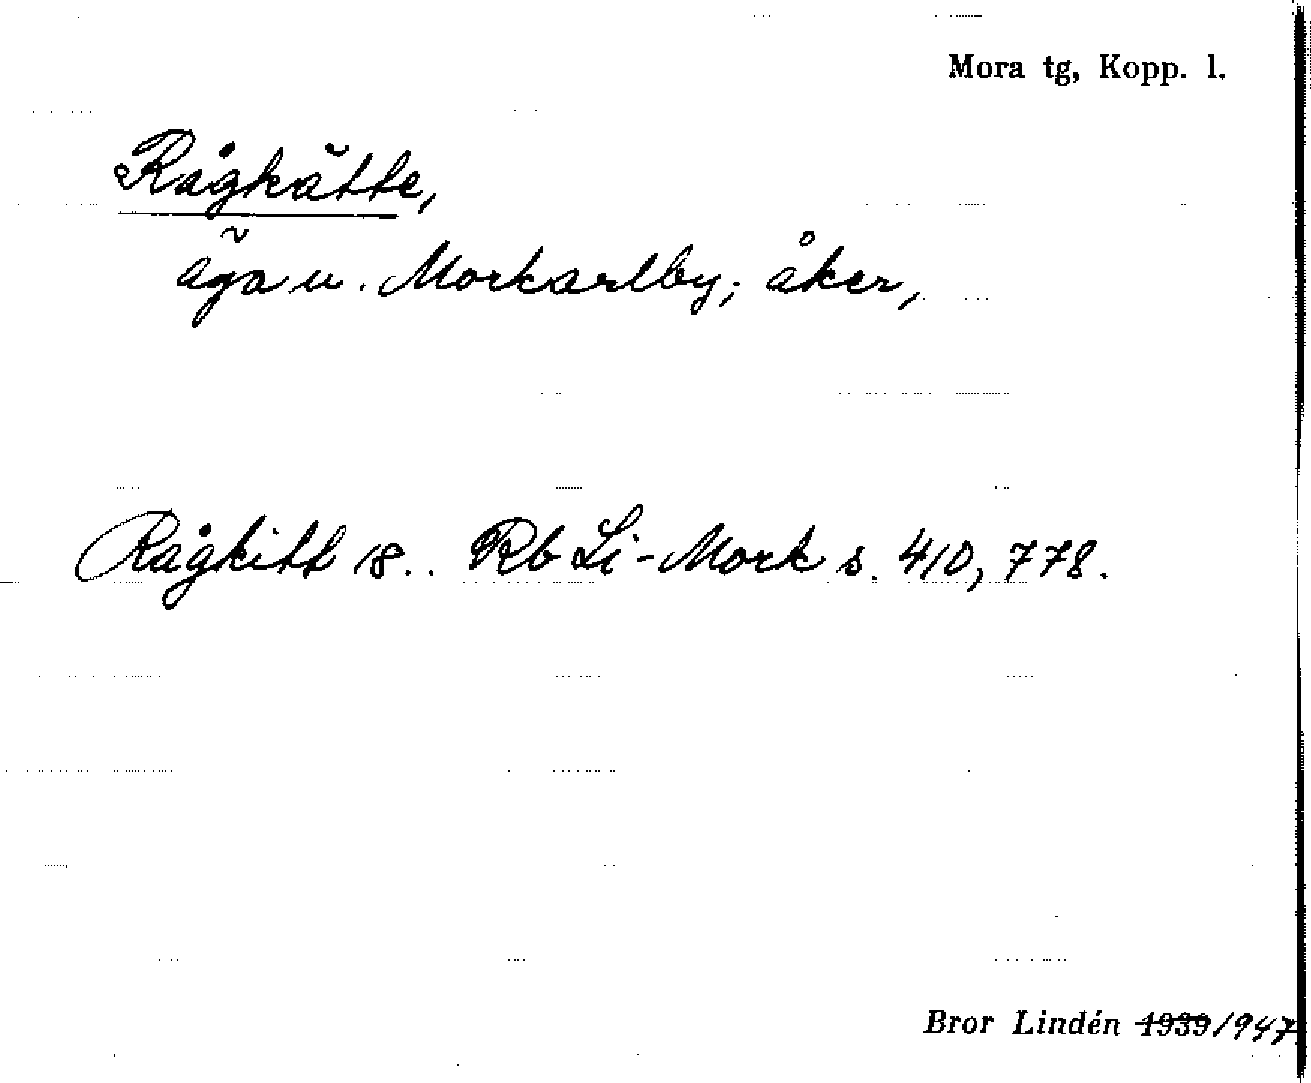 Mora tg, Kopp. l.
Rågkätte,
äga u. Morkarlby; åker,
Rågkitt 18.. Rb Li-Mork s. 410, 778.
Bror Lindén 1939 1947